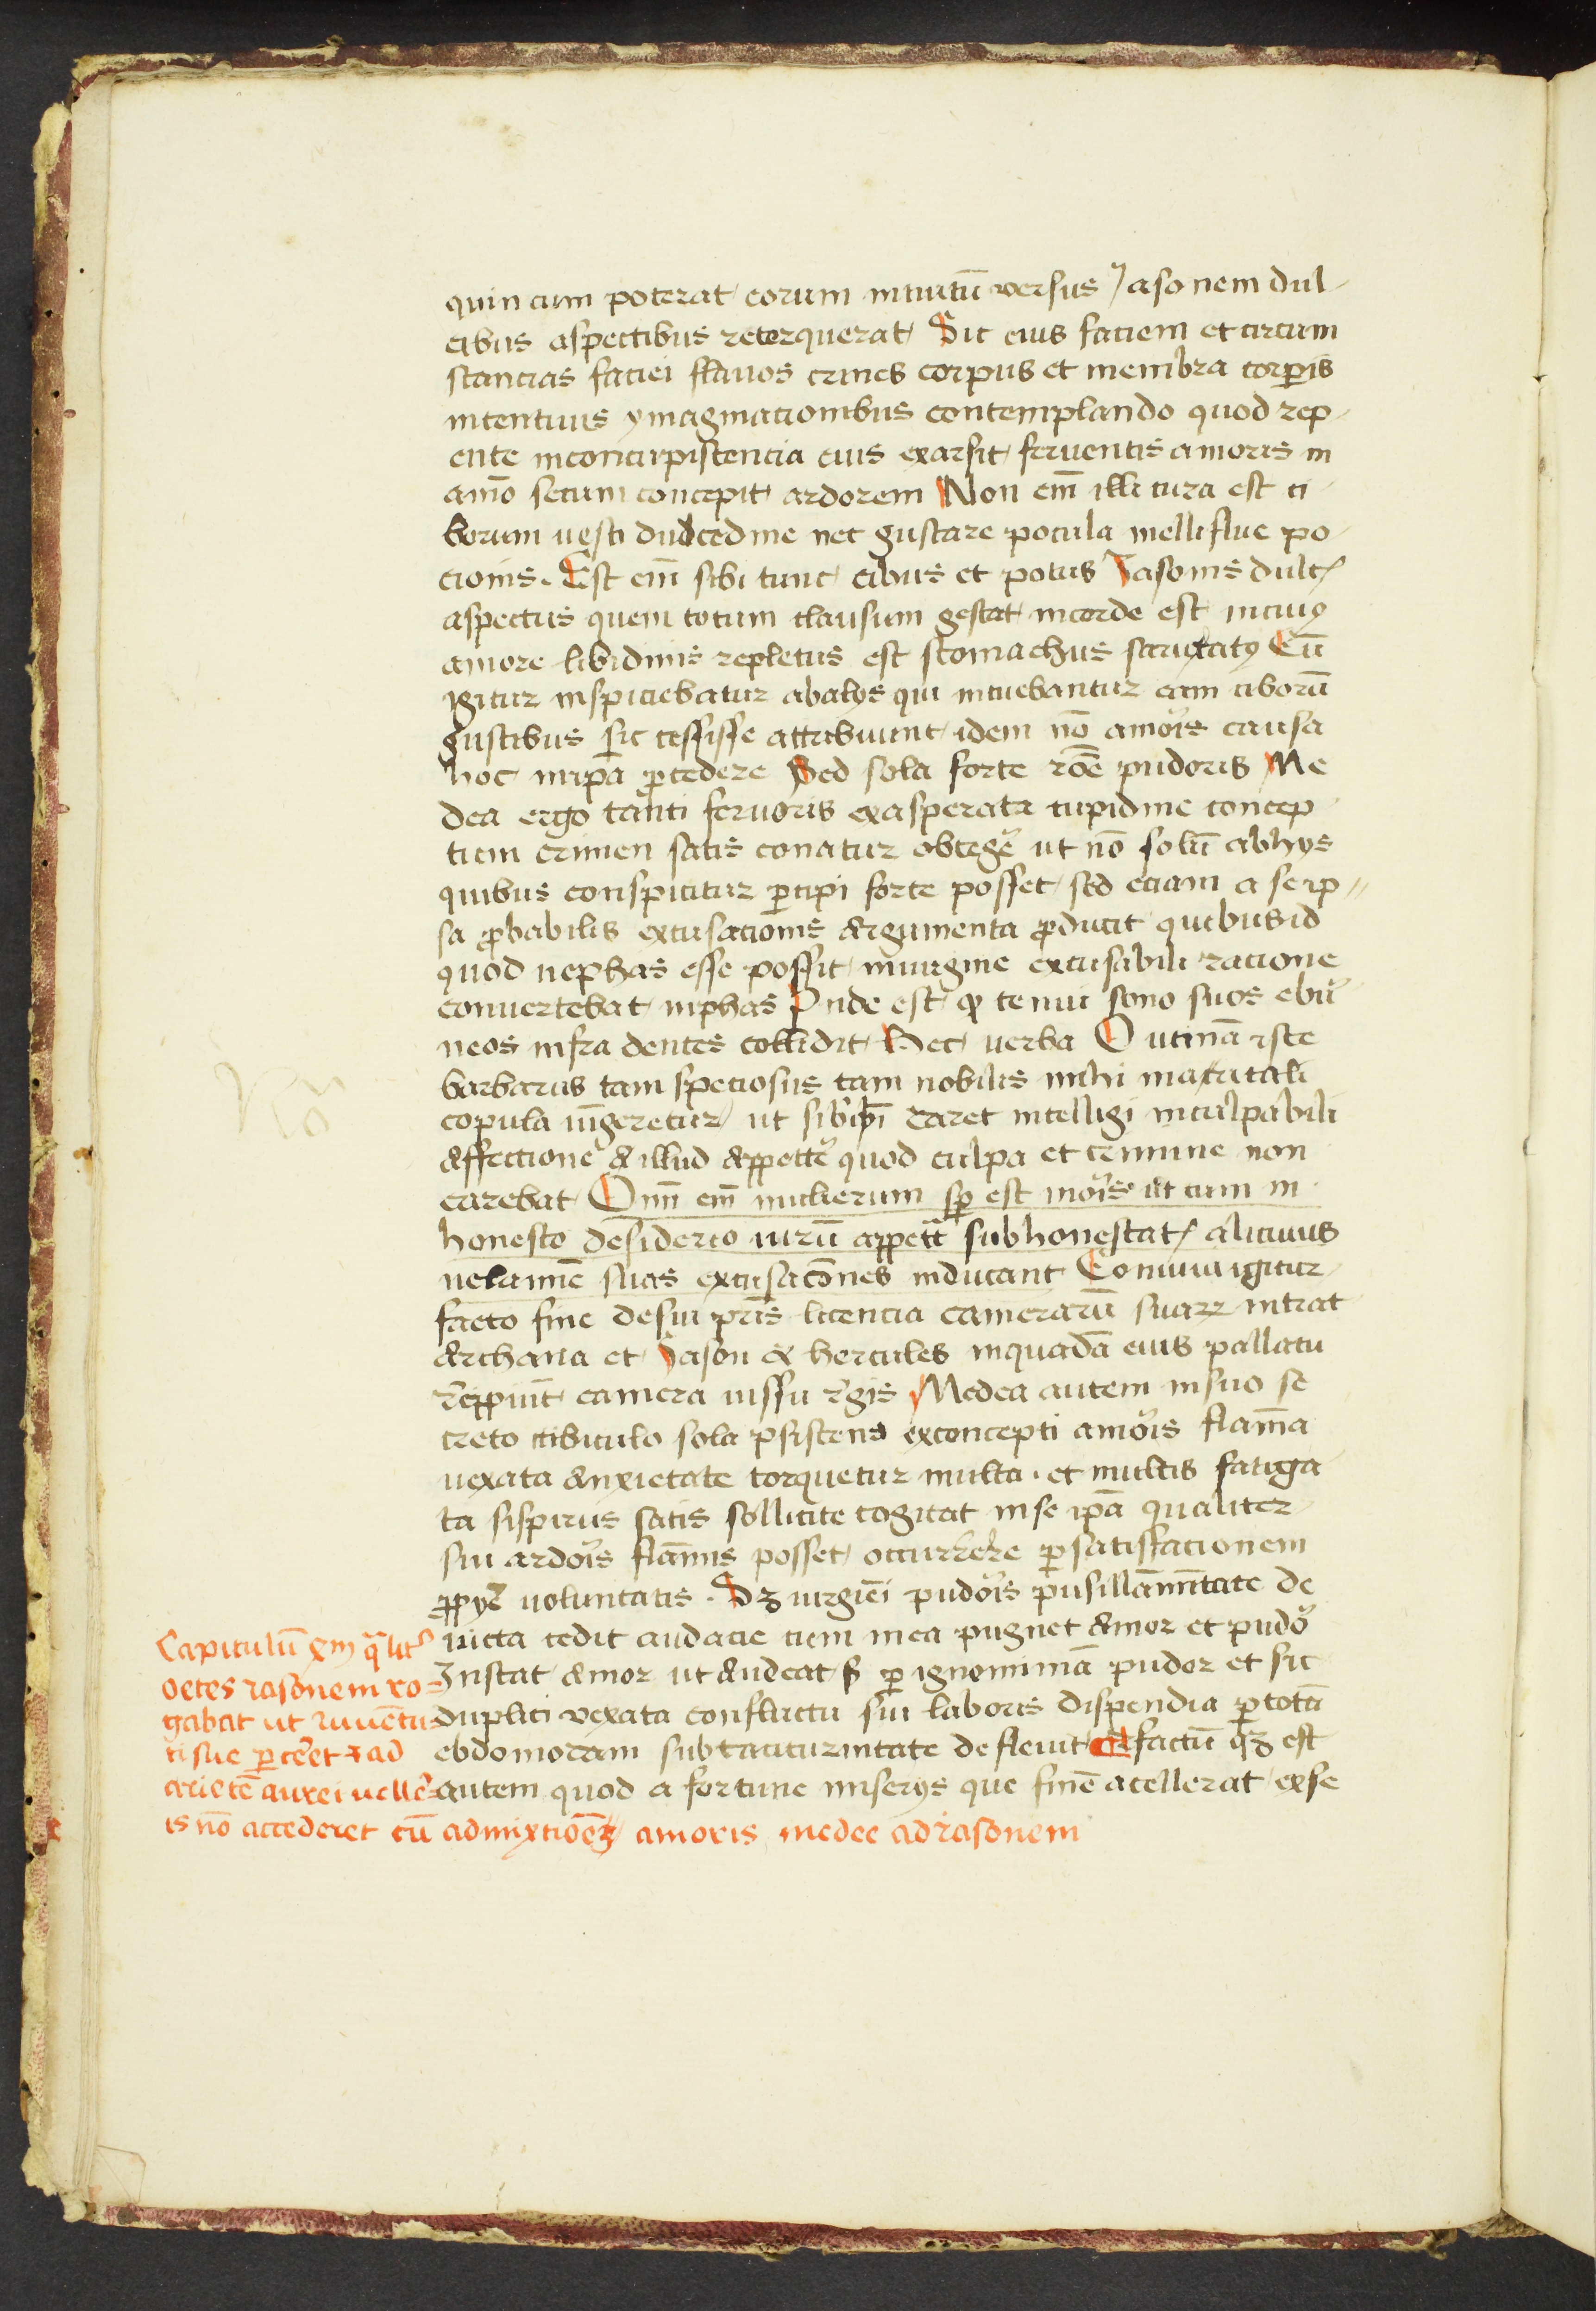 quin cum poterat eorum intuitū versus Jasonem dul
cibus aspectibus retorquerat Sic eius faciem et circum
stancias faciei flavos crines corpus et membra corꝑis
intentivis ymaginacionibus contemplando quod rep
ente inconcupiscencia eius exarsit ferventis amoris in
aīo secum concepit ardorem Non em̄ illi cura est ci
borum vesci dulcedine nec gustare pocula melliflue po
cionis. Est em̄ sibi tunc cibus et potus Jasonis dulc
aspectus quem totum clausum gestat incorde est incuiꝰ
amore libidinis repletus est stomachus saturatꝰ Cū
igitur inspiciebatur abalijs qui intuebantur eam ciborū
gustibus sic cessisse attribuunt idem nō amoris causa
hoc inipā ꝓcedere Sed sola forte rōe pudoris Me
dea ergo tanti fervoris exasperata cupidine concep
tum crimen satis conatur obtegē ut nō solū abhijs
quibus conspicitur ꝑcipi forte posset sed eciam a seip
sa ꝓbabilis excusacionis argumenta ꝓducit quibus id
quod nephas esse possit invirgine excusabili racione
convertebat inphas Inde est ꝙ tenui sono suos ebur
neos infra dentes collidit Hec verba O utinā iste
barbarus tam speciosus tam nobilis mihi maritali
copula iūgeretur ut sibi daret intelligi inculpabili
affectione &illud appetē quod culpa et crimine non
carebat Om̄ em̄ mulierum sꝑ est moris ut cum in
honesto desiderio virū appetūt subhonestat alicuius
velamīe suas excusacōnes inducant Convivii igitur
facto fine desui pr̄is licencia camerarū suarꝝ intrat
archana et Jason & hercules inquadā eius pallacii
recipiunt camera iussu regis Medea autem insuo se
creto cubiculo sola ꝑsistens exconcepti amoris flam̄a
vexata anxietate torquetur multa. et multis fatiga
ta sispiriis satis sollicite cogitat inse ipā qualiter
sui ardoris flāmis posset occurrere ꝑsatisfacionem
ꝓpꝑie voluntatis. Sꝫ virginei pudoris pusillāimitate de
victa cedit audacie cum inea pugnet amor et pudor
Instat amor ut audeat sꝫ ꝑ ignominiā pudor et sic
duplici vexata conflictu sui laboris dispendia ꝑ totā
ebdomodam subtaciturnitate deflevit Et factū qꝫ est
autem quod a fortune miserijs que finē acellerat exse
Capitulū xm qualit
oetes iasonem ro-
gabat ut iuventu
ti sue ꝑceret & ad
arietē aurei veller
is nō accederet cū admixtiōe amoris medee ad iasonem